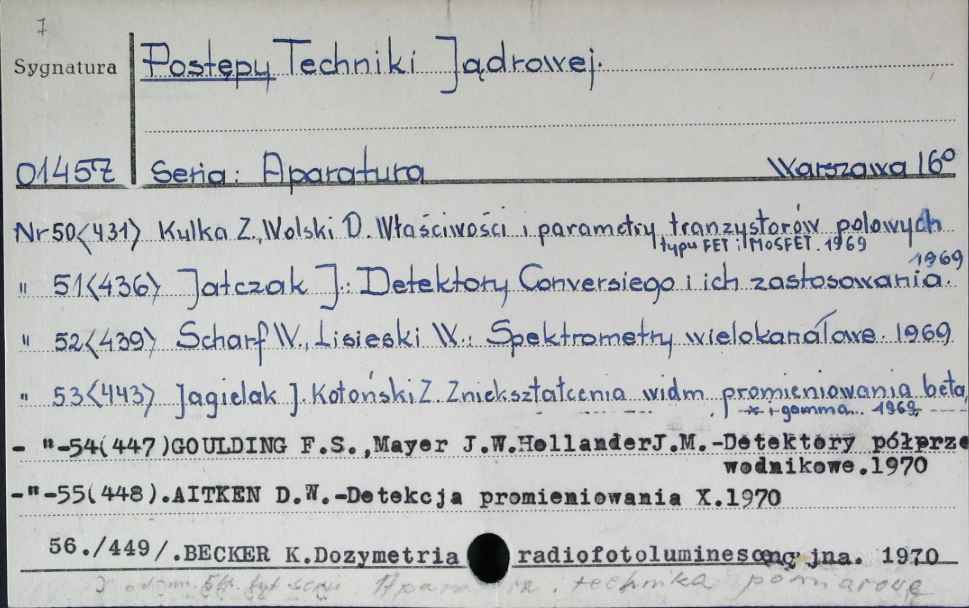 7
Sygnatura Postępy Techniki Jądrowej.
01457 Seria: Aparatura Warszawa 16°
Nr 50<431> Kulka Z., Wolski D. Właściwości i parametry tranzystorów polowych
typu FET i MOSFET. 1969
" 51<436> Jatczak J.: Detektory Conversiego i ich zastosowania. 1969
" 52<439> Scharf W., Lisieski W.: Spektrometry wielokanałowe. 1969
" 53<443> Jagielak J. Kotoński Z. Zniekształcenia widm promieniowania beta,
x i gamma. 1969
- "-54(447)GOULDING F.S.,Mayer J.W.HollanderJ.M.-Detektory półprze
wodnikowe.1970
-"-55(448).AITKEN D.W.-Detekcja promieniowania X.1970
56./449/.BECKER K.Dozymetria radiofotoluminescencyjna. 1970
technika pomiarowa